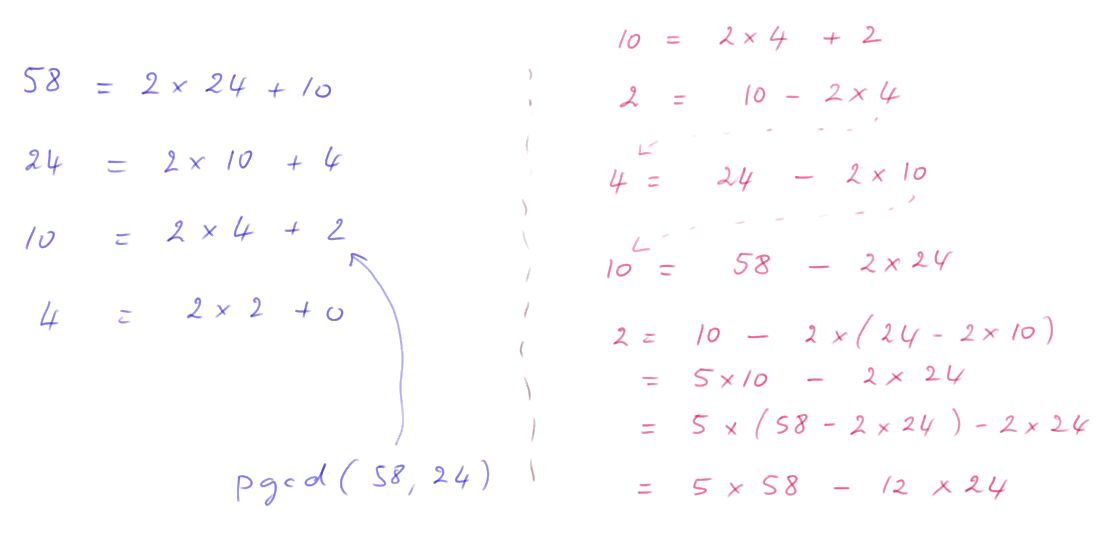 58 = 2 × 24 + 10
24 = 2 × 10 + 4
10 = 2 × 4 + 2
4 = 2 × 2 + 0
pgcd(58, 24)
10 = 2 × 4 + 2
2 = 10 - 2 × 4
4 = 24 - 2 × 10
10 = 58 - 2 × 24
2 = 10 - 2 × (24 - 2 × 10)
= 5 × 10 - 2 × 24
= 5 × (58 - 2 × 24) - 2 × 24
= 5 × 58 - 12 × 24